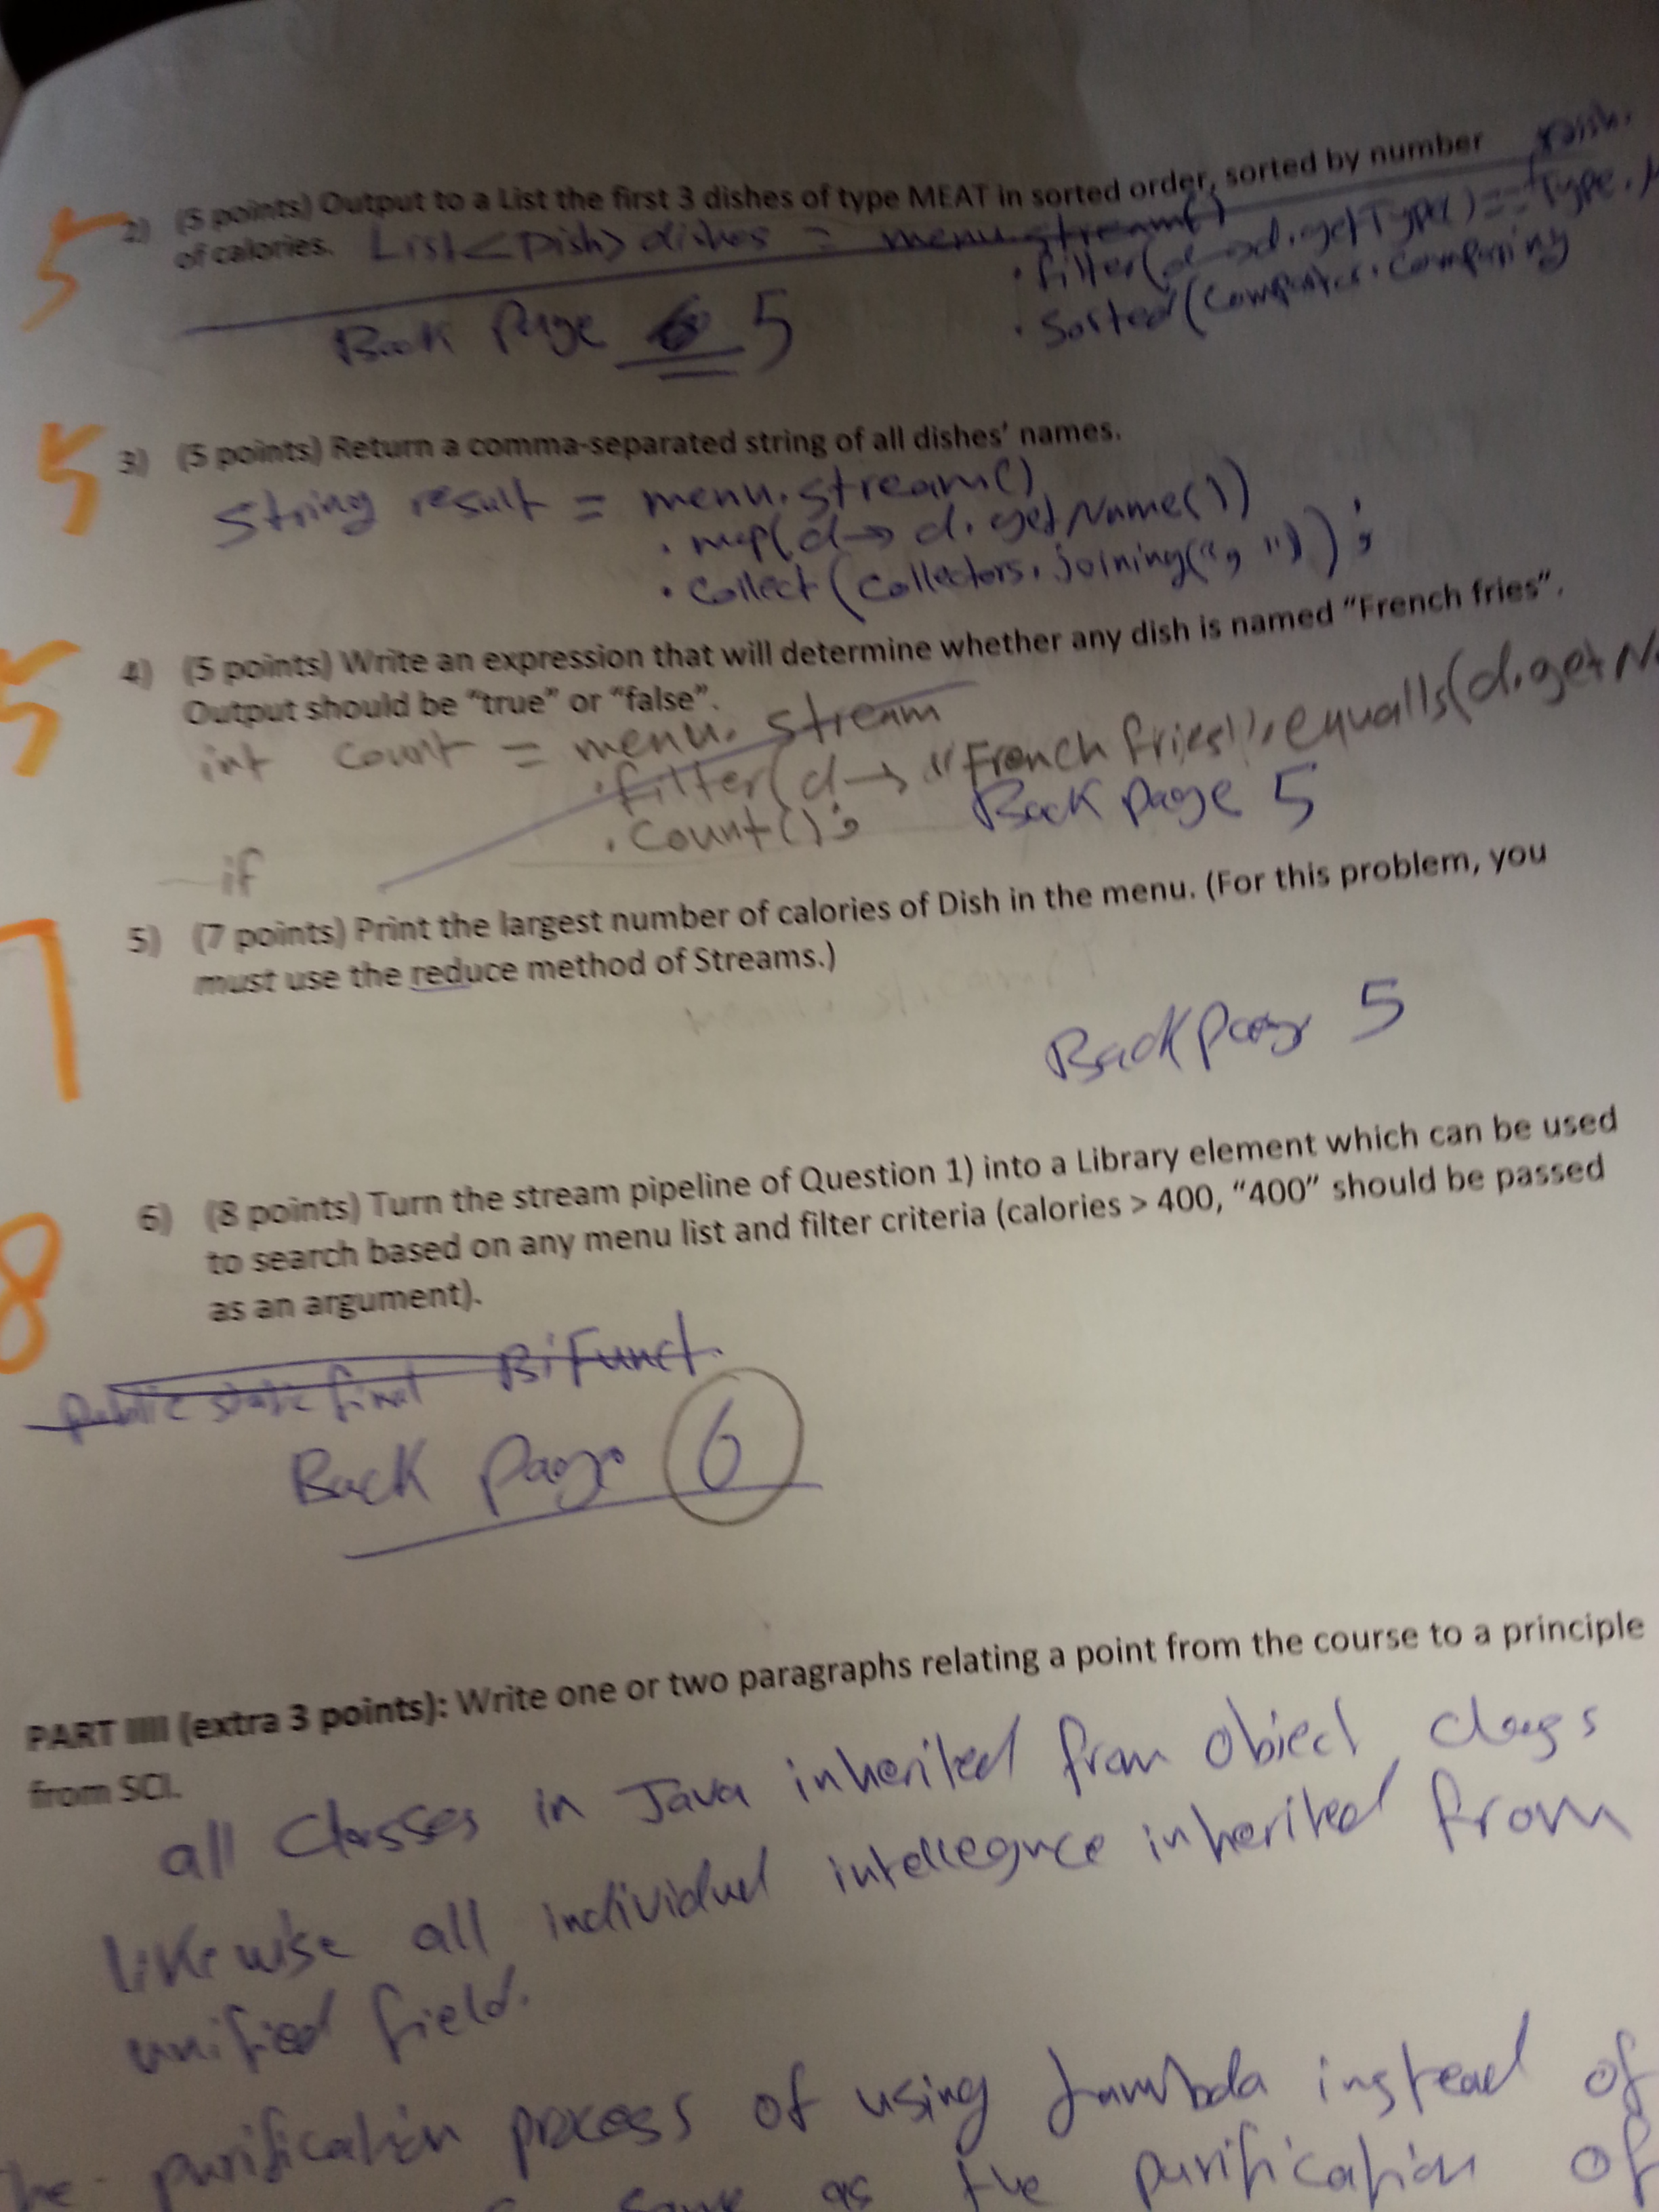 5
2) (5 points) Output to a List the first 3 dishes of type MEAT in sorted order, sorted by number
of calories. List<Dish> dishes = menu.stream()
.filter(d->d.getType() == Type.
.sorted(Comparator.comparing
Back Page 5
5
3) (5 points) Return a comma-separated string of all dishes’ names.
String result = menu.stream()
.map(d-> d.getName())
.collect(Collectors.joining(", "));
5
4) (5 points) Write an expression that will determine whether any dish is named “French fries”.
Output should be “true” or “false”.
int count = menu.stream
.filter(d-> "French fries".equalls(d.getN
.count();
Back page 5
if
7
5) (7 points) Print the largest number of calories of Dish in the menu. (For this problem, you
must use the reduce method of Streams.)
Back Page 5
8
6) (8 points) Turn the stream pipeline of Question 1) into a Library element which can be used
to search based on any menu list and filter criteria (calories > 400, “400” should be passed
as an argument).
public static final BiFunct.
Back Page 6
PART IIII (extra 3 points): Write one or two paragraphs relating a point from the course to a principle
from SCI.
all Classes in Java inherited from Object class
likewise all individual intellegnce inherited from
unified field.
The purification process of using Lambda instead of
same as the purification of